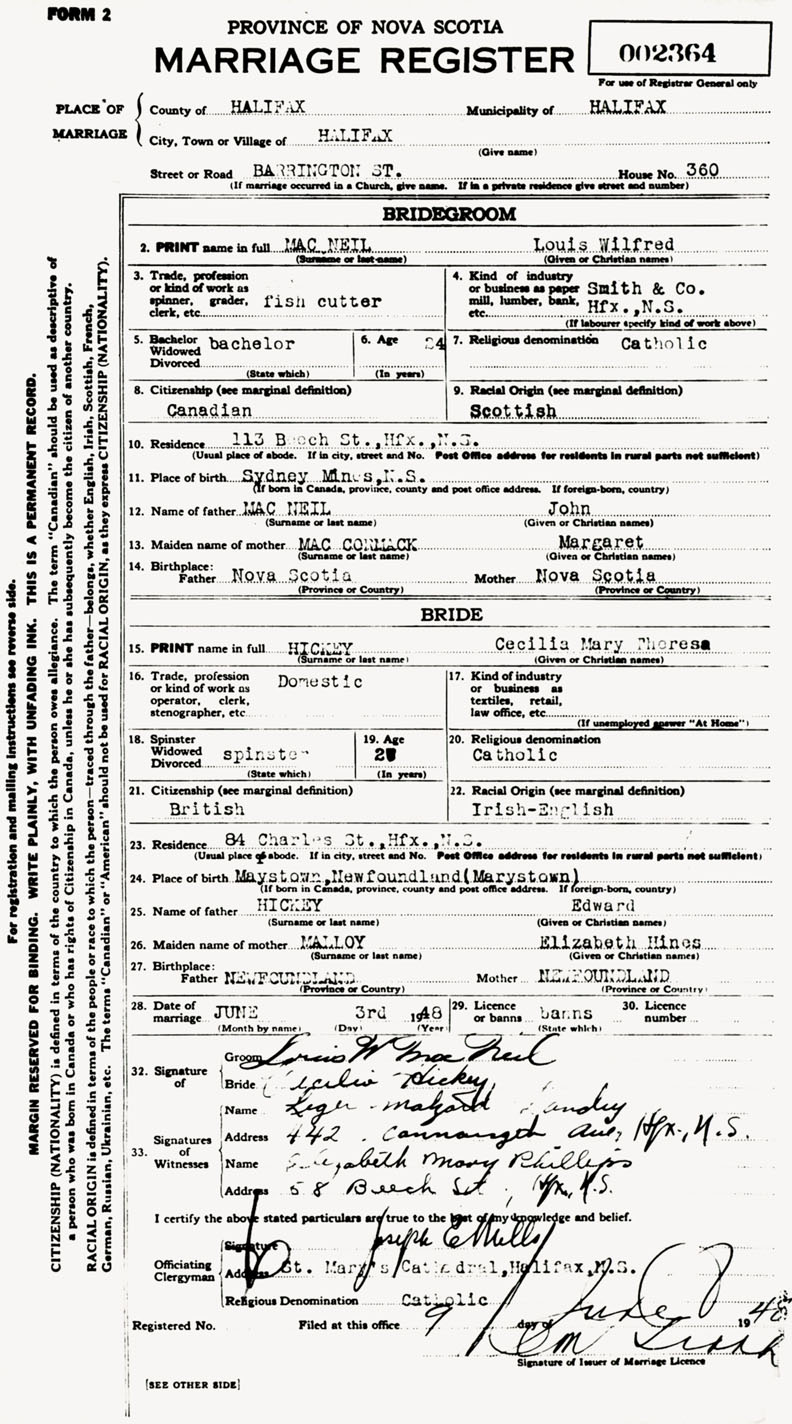 FORM 2
PROVINCE OF NOVA SCOTIA
MARRIAGE REGISTER
002364
For use of Registrar General only
PLACE OF MARRIAGE
County of HALIFAX Municipality of HALIFAX
City, Town or Village of HALIFAX
(Give name)
Street or Road BARRINGTON ST. House No. 360
(If marriage occurred in a Church, give name. If in a private residence give street and number)
BRIDEGROOM
2. PRINT name in full MAC NEIL Louis Wilfred
(Surname or last name) (Given or Christian names)
3. Trade, profession or kind of work as spinner, grader, clerk, etc. fish cutter
4. Kind of industry or business as paper mill, lumber, bank, etc. Smith & Co. Hfx.,N.S.
(If labourer specify kind of work above)
5. Bachelor Widowed Divorced bachelor
(State which)
6. Age 24
(In years)
7. Religious denomination Catholic
8. Citizenship (see marginal definition)
Canadian
9. Racial Origin (see marginal definition)
Scottish
10. Residence 113 Beech St.,Hfx.,N.S.
(Usual place of abode. If in city, street and No. Post Office address for residents in rural parts not sufficient)
11. Place of birth Sydney Mines,N.S.
(If born in Canada, province, county and post office address. If foreign-born, country)
12. Name of father MAC NEIL John
(Surname or last name) (Given or Christian names)
13. Maiden name of mother MAC CORMACK Margaret
(Surname or last name) (Given or Christian names)
14. Birthplace:
Father Nova Scotia Mother Nova Scotia
(Province or Country) (Province or Country)
BRIDE
15. PRINT name in full HICKEY Cecilia Mary Theresa
(Surname or last name) (Given or Christian names)
16. Trade, profession or kind of work as operator, clerk, stenographer, etc Domestic
17. Kind of industry or business as textiles, retail, law office, etc.
(If unemployed answer "At Home")
18. Spinster Widowed Divorced spinster
(State which)
19. Age
(In years)
20. Religious denomination
Catholic
21. Citizenship (see marginal definition)
British
22. Racial Origin (see marginal definition)
Irish-English
23. Residence 84 Charles St.,Hfx.,N.S.
(Usual place of abode. If in city, street and No. Post Office address for residents in rural parts not sufficient)
24. Place of birth Maystown,Newfoundland(Marystown)
(If born in Canada, province, county and post office address. If foreign-born, country)
25. Name of father HICKEY Edward
(Surname or last name) (Given or Christian names)
26. Maiden name of mother MALLOY Elizabeth Hines
(Surname or last name) (Given or Christian names)
27. Birthplace:
Father NEWFOUNDLAND Mother NEWFOUNDLAND
(Province or Country) (Province or Country)
28. Date of marriage JUNE 3rd 1948
(Month by name) (Day) (Year)
29. Licence or banns banns
(State which)
30. Licence number
32. Signature of
Groom Louis W MacNeil
Bride Cecilia Hickey
33. Signatures of Witnesses
Name Leger Landry
Address 442 Connaught Ave, Hfx., N.S.
Name Elizabeth Mary Phillips
Address 58 Beech St, Hfx, N.S.
I certify the above stated particulars are true to the best of my knowledge and belief.
Officiating Clergyman
Signature Joseph E Mills
Address St. Mary's Cathedral,Halifax,N.S.
Religious Denomination Catholic
Registered No. Filed at this office 9 day of June 1948
Signature of Issuer of Marriage Licence
[SEE OTHER SIDE]
For registration and mailing instructions see reverse side.
MARGIN RESERVED FOR BINDING. WRITE PLAINLY, WITH UNFADING INK. THIS IS A PERMANENT RECORD.
CITIZENSHIP (NATIONALITY) is defined in terms of the country to which the person owes allegiance. The term "Canadian" should be used as descriptive of
a person who was born in Canada or who has rights of Citizenship in Canada, unless he or she has subsequently become the citizen of another country.
RACIAL ORIGIN is defined in terms of the people or race to which the person—traced through the father—belongs, whether English, Irish, Scottish, French,
German, Russian, Ukrainian, etc. The terms "Canadian" or "American" should not be used for RACIAL ORIGIN, as they express CITIZENSHIP (NATIONALITY).